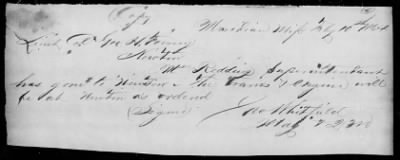 Copy
Meridian Miss July 10th 1864
Lieut D Geo H. Young
Newton
Mr Redding Superintendent
has gone to Newton - The trains & Engine will
be at Newton as ordered
(Signed) Jno Whitfield
Maj & Q.M.